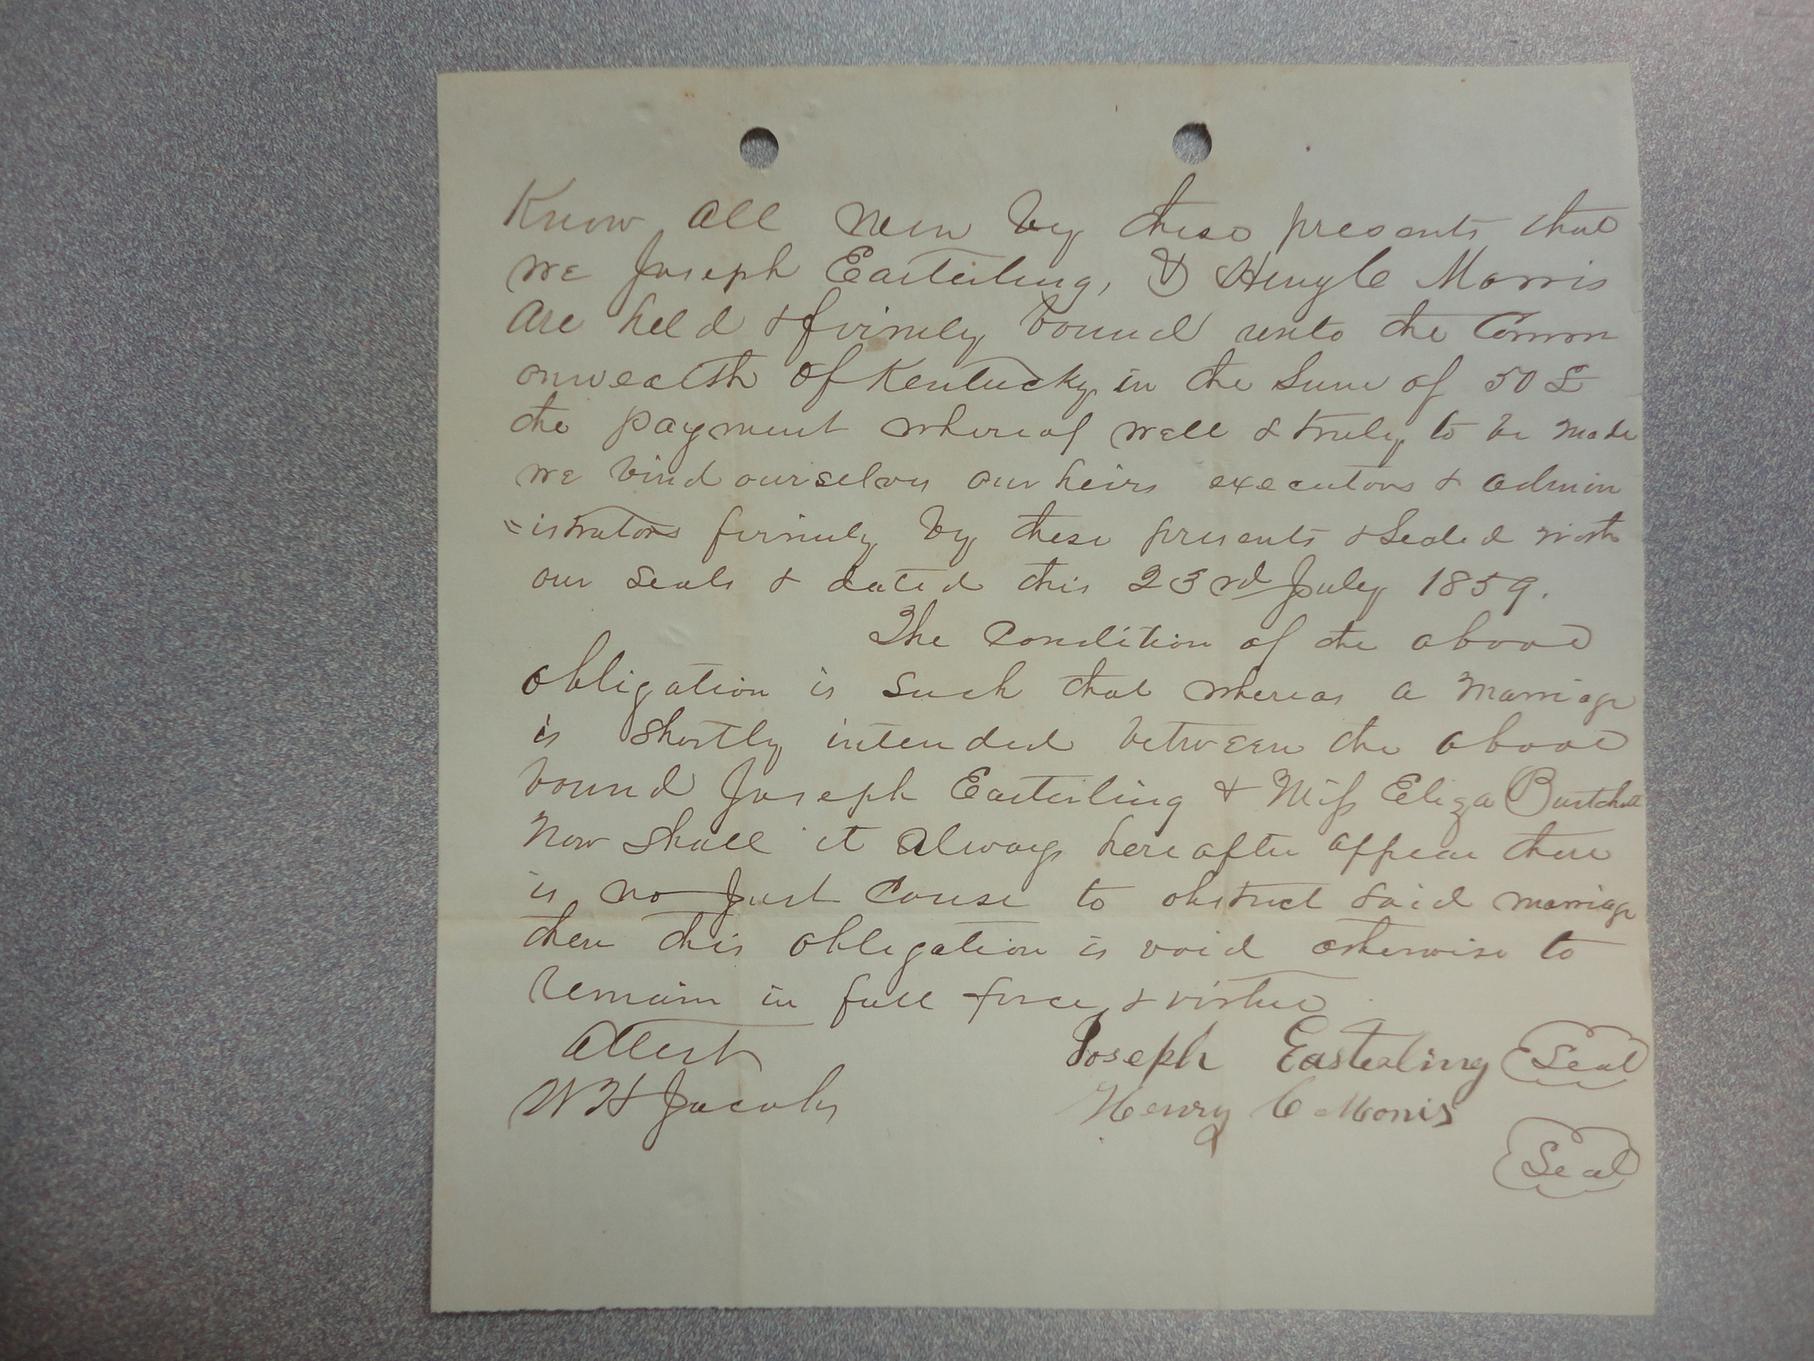 Know all men by these presents that
we Joseph Easterling, & Henry C Morris
Are held & firmly bound unto the Common
onwealth of Kentucky in the Sum of 50 £
the payment whereof well & truly to be made
we bind ourselves our heirs executors & admin
=istrators firmly by these presents & Sealed with
our Seals & dated this 23rd July 1859.
The Condition of the above
obligation is Such that whereas a Marriage
is Shortly intended between the above
bound Joseph Easterling & Miss Eliza
Now Shall it always hereafter appear there
is no Just Cause to obstruct Said marriage
then this obligation is void otherwise to
Remain in full force & virtue
Attest
Joseph Easterling Seal
W H Jacobs
Henry C Morris
Seal